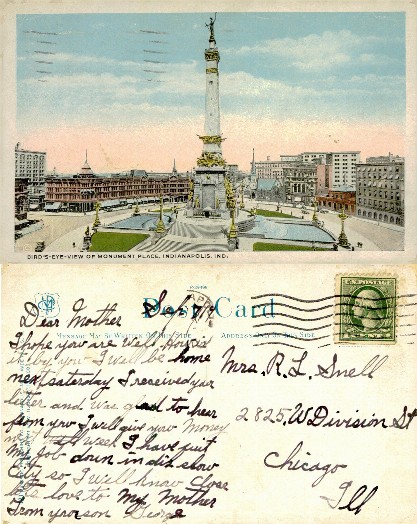 BIRD'S-EYE-VIEW OF MONUMENT PLACE, INDIANAPOLIS, IND.
Post Card
MESSAGE MAY BE WRITTEN ON THIS SIDE
ADDRESS ONLY ON THIS SIDE
U.S. POSTAGE
Dear Mother
I hope you are well
it by you I will be home
next saturday I received your
letter and was glad to hear
from you I will give you money
week I have just
my job down in
City so I will know Close
love to My Mother
From your son George
Mrs. R. L. Snell
2825 W Division St
Chicago
Ill